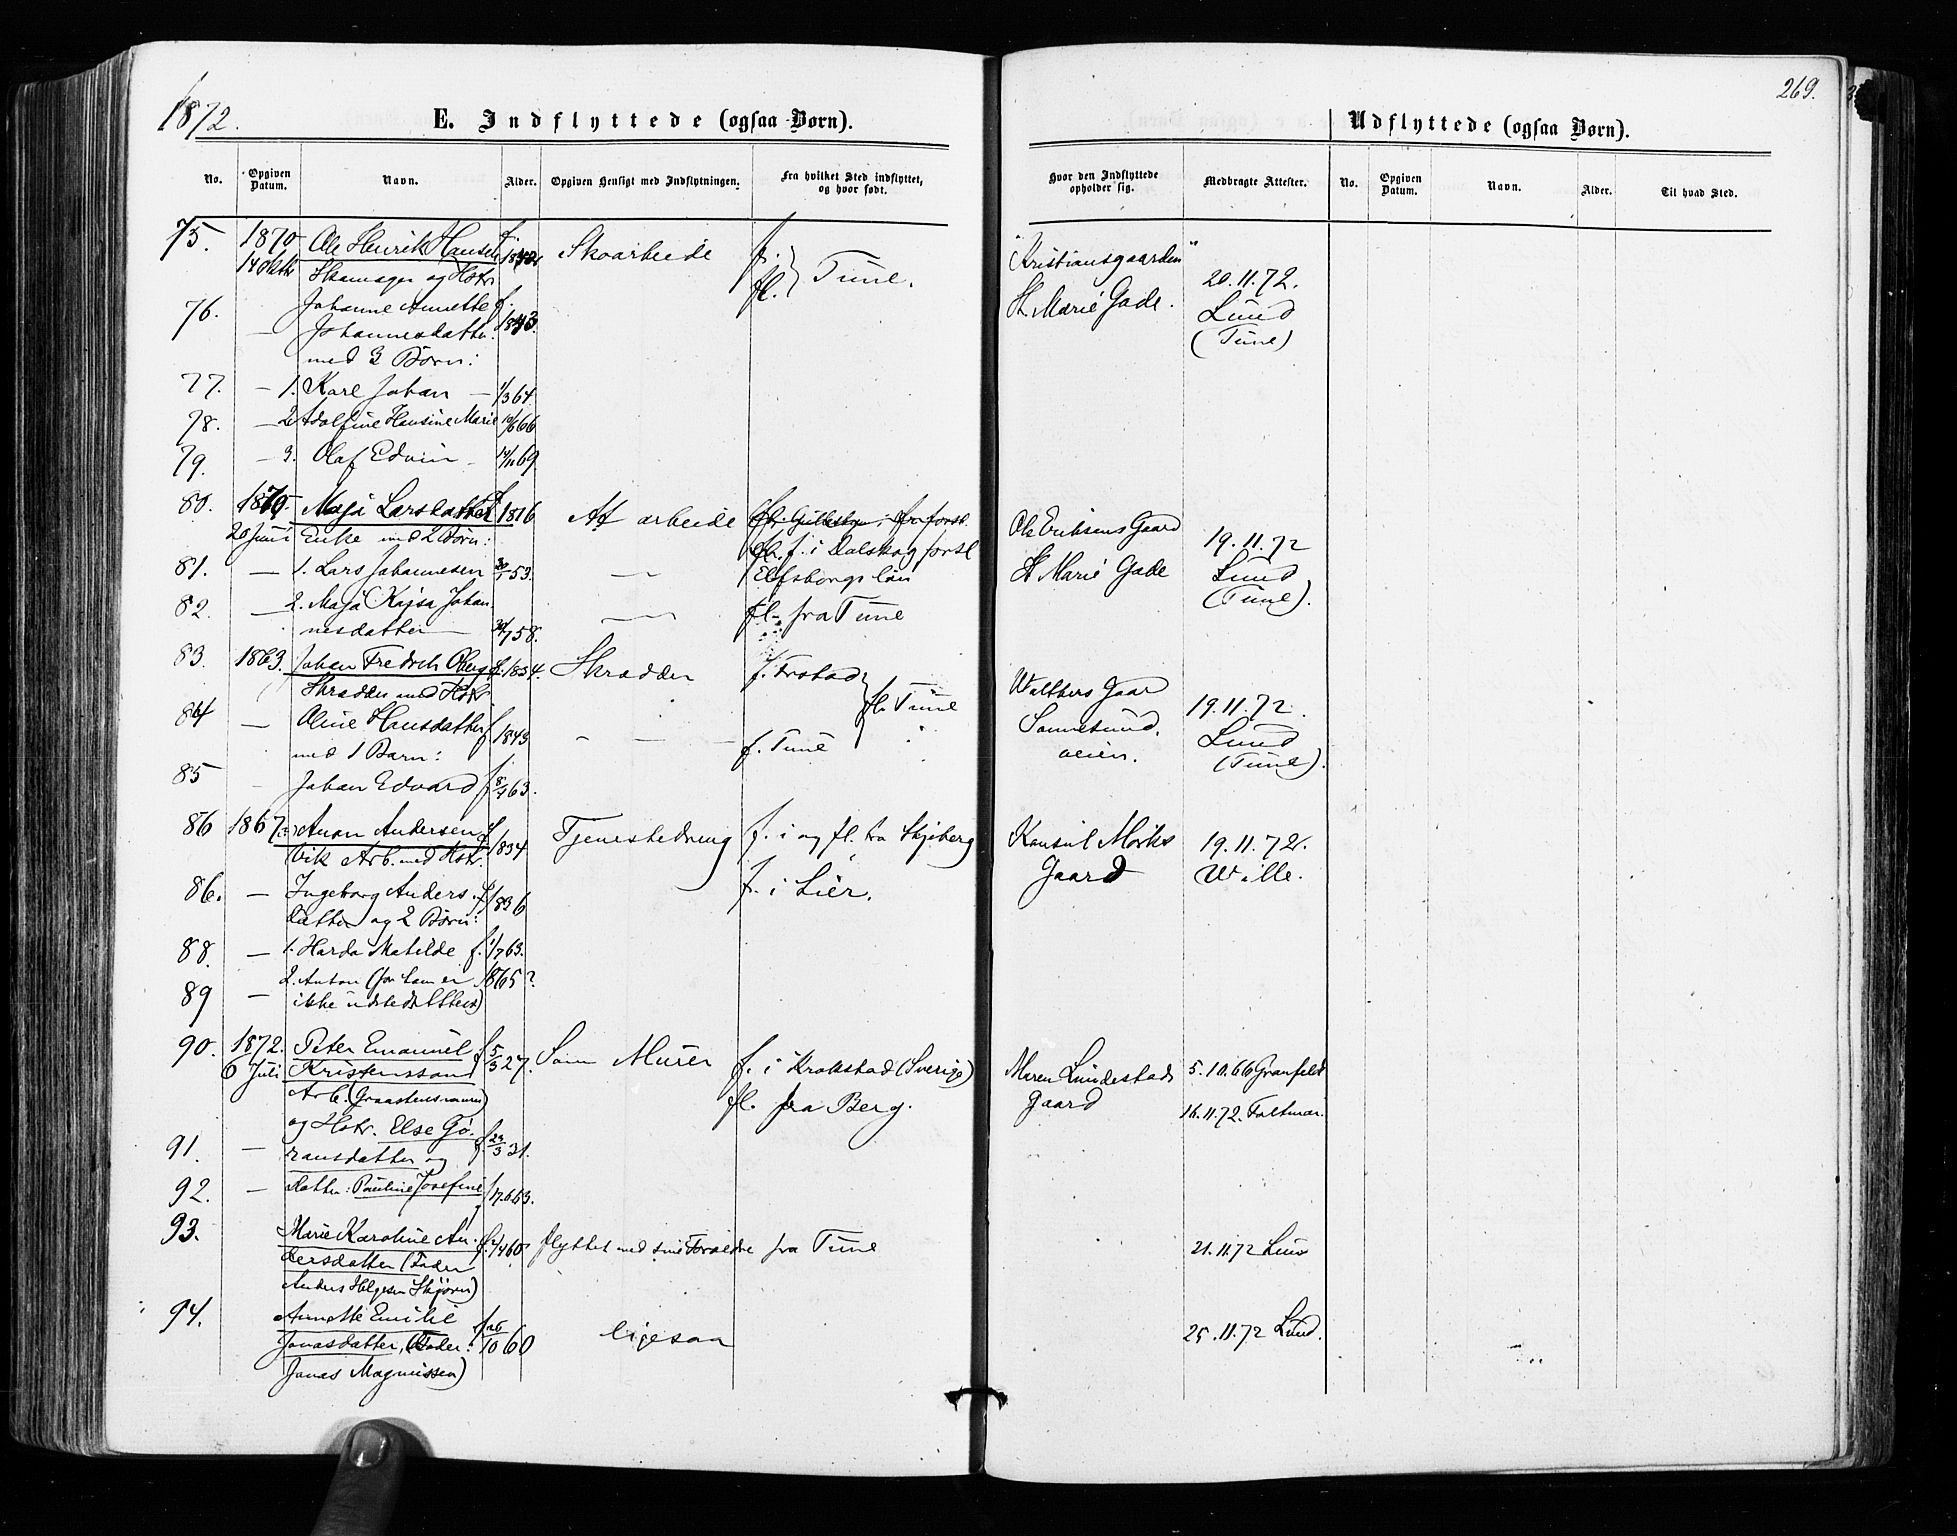 1872.
E. Indflyttede (ogsaa Børn).
Udflyttede (ogsaa Børn).
269.
No.
Opgiven Datum.
Navn.
Alder.
Opgiven Hensigt med Indflytningen.
Fra hvilket Sted indflyttet, og hvor født.
Hvor den Indflyttede opholder sig.
Medbragte Attester.
No.
Opgiven Datum.
Navn.
Alder.
Til hvad Sted.
75. 1870 Ole Henrik Hansen f. Skoarbeide f. "Kristiansgaarden"
14 Okt og Hstr fl. Tune. 20.11.72.
76. Johanne Annette f. St. Marie Gade. Lund
— Johannesdatter. 1843. (Tune)
med 3 Børn:
77. — 1. Karl Johan — 1/3 64.
78. — 2. Adolfine Hansine Marie 10/6 66
79. — 3. Olaf Edvin — 14/11 69
80. 1870. Maja Larsdatter f. 1816 Af arbeide Ole Eriksens Gaard
20 Juni Enke med 2 Børn: fl. f. i Dalskog forsl 19.11.72
81. — 1. Lars Johannesen 53. — Elfsborgs län St Marie Gade Lund
82. — 2. Maja Kajsa Johan- — fl. fra Tune (Tune).
nesdatter — 58.
83. 1863. Johan Fredrik Oberg f. 1834. Skrædder f.
Skrædder med Hstr. fl. Tune Walthers Gaar
84 — Oline Hansdatter f. 1843 — — — f. Tune Sannesund. 19.11.72.
med 1 Barn: veien. Lund
85 — Johan Edvard f. 8/4 63. (Tune).
86 1867. Andersen f. Tjenestedreng f. i og fl. fra Skjeberg Konsul Mørks 19.11.72.
vik Arb. med Hstr. 1834 Gaard Wille.
86. — Ingeborg Anders- f. f. i Lier.
datter og 2 Børn: 1836
88. — 1. Harda Matilde f. 1/7 63.
2. Anton (for ham er 1865?
89 — ikke udstedt Attest)
90. 1872. Peter Emanuel f. 5/3 27. Som Murer f. i Krokstad (Sverige) Maren Lundestads 5.10.66 Granfeldt
6 Juli Kristensson fl. fra Berg. Gaard
Arb. 16.11.72.
og Hstr. Else Gø-
91. — ransdatter og f. 23/3 31.
92. — Datter: Pauline Josefine f. 17.6.63.
93. Marie Karoline An- f. 60 flyttet med sine Forældre fra Tune 21.11.72 Lund
dersdatter (Fader
Anders Helgesen Skjørin)
94. Annette Emilie f. 26/10 60 ligesaa 25.11.72 Lund.
Jonasdatter, (Fader:
Jonas Magnussen)